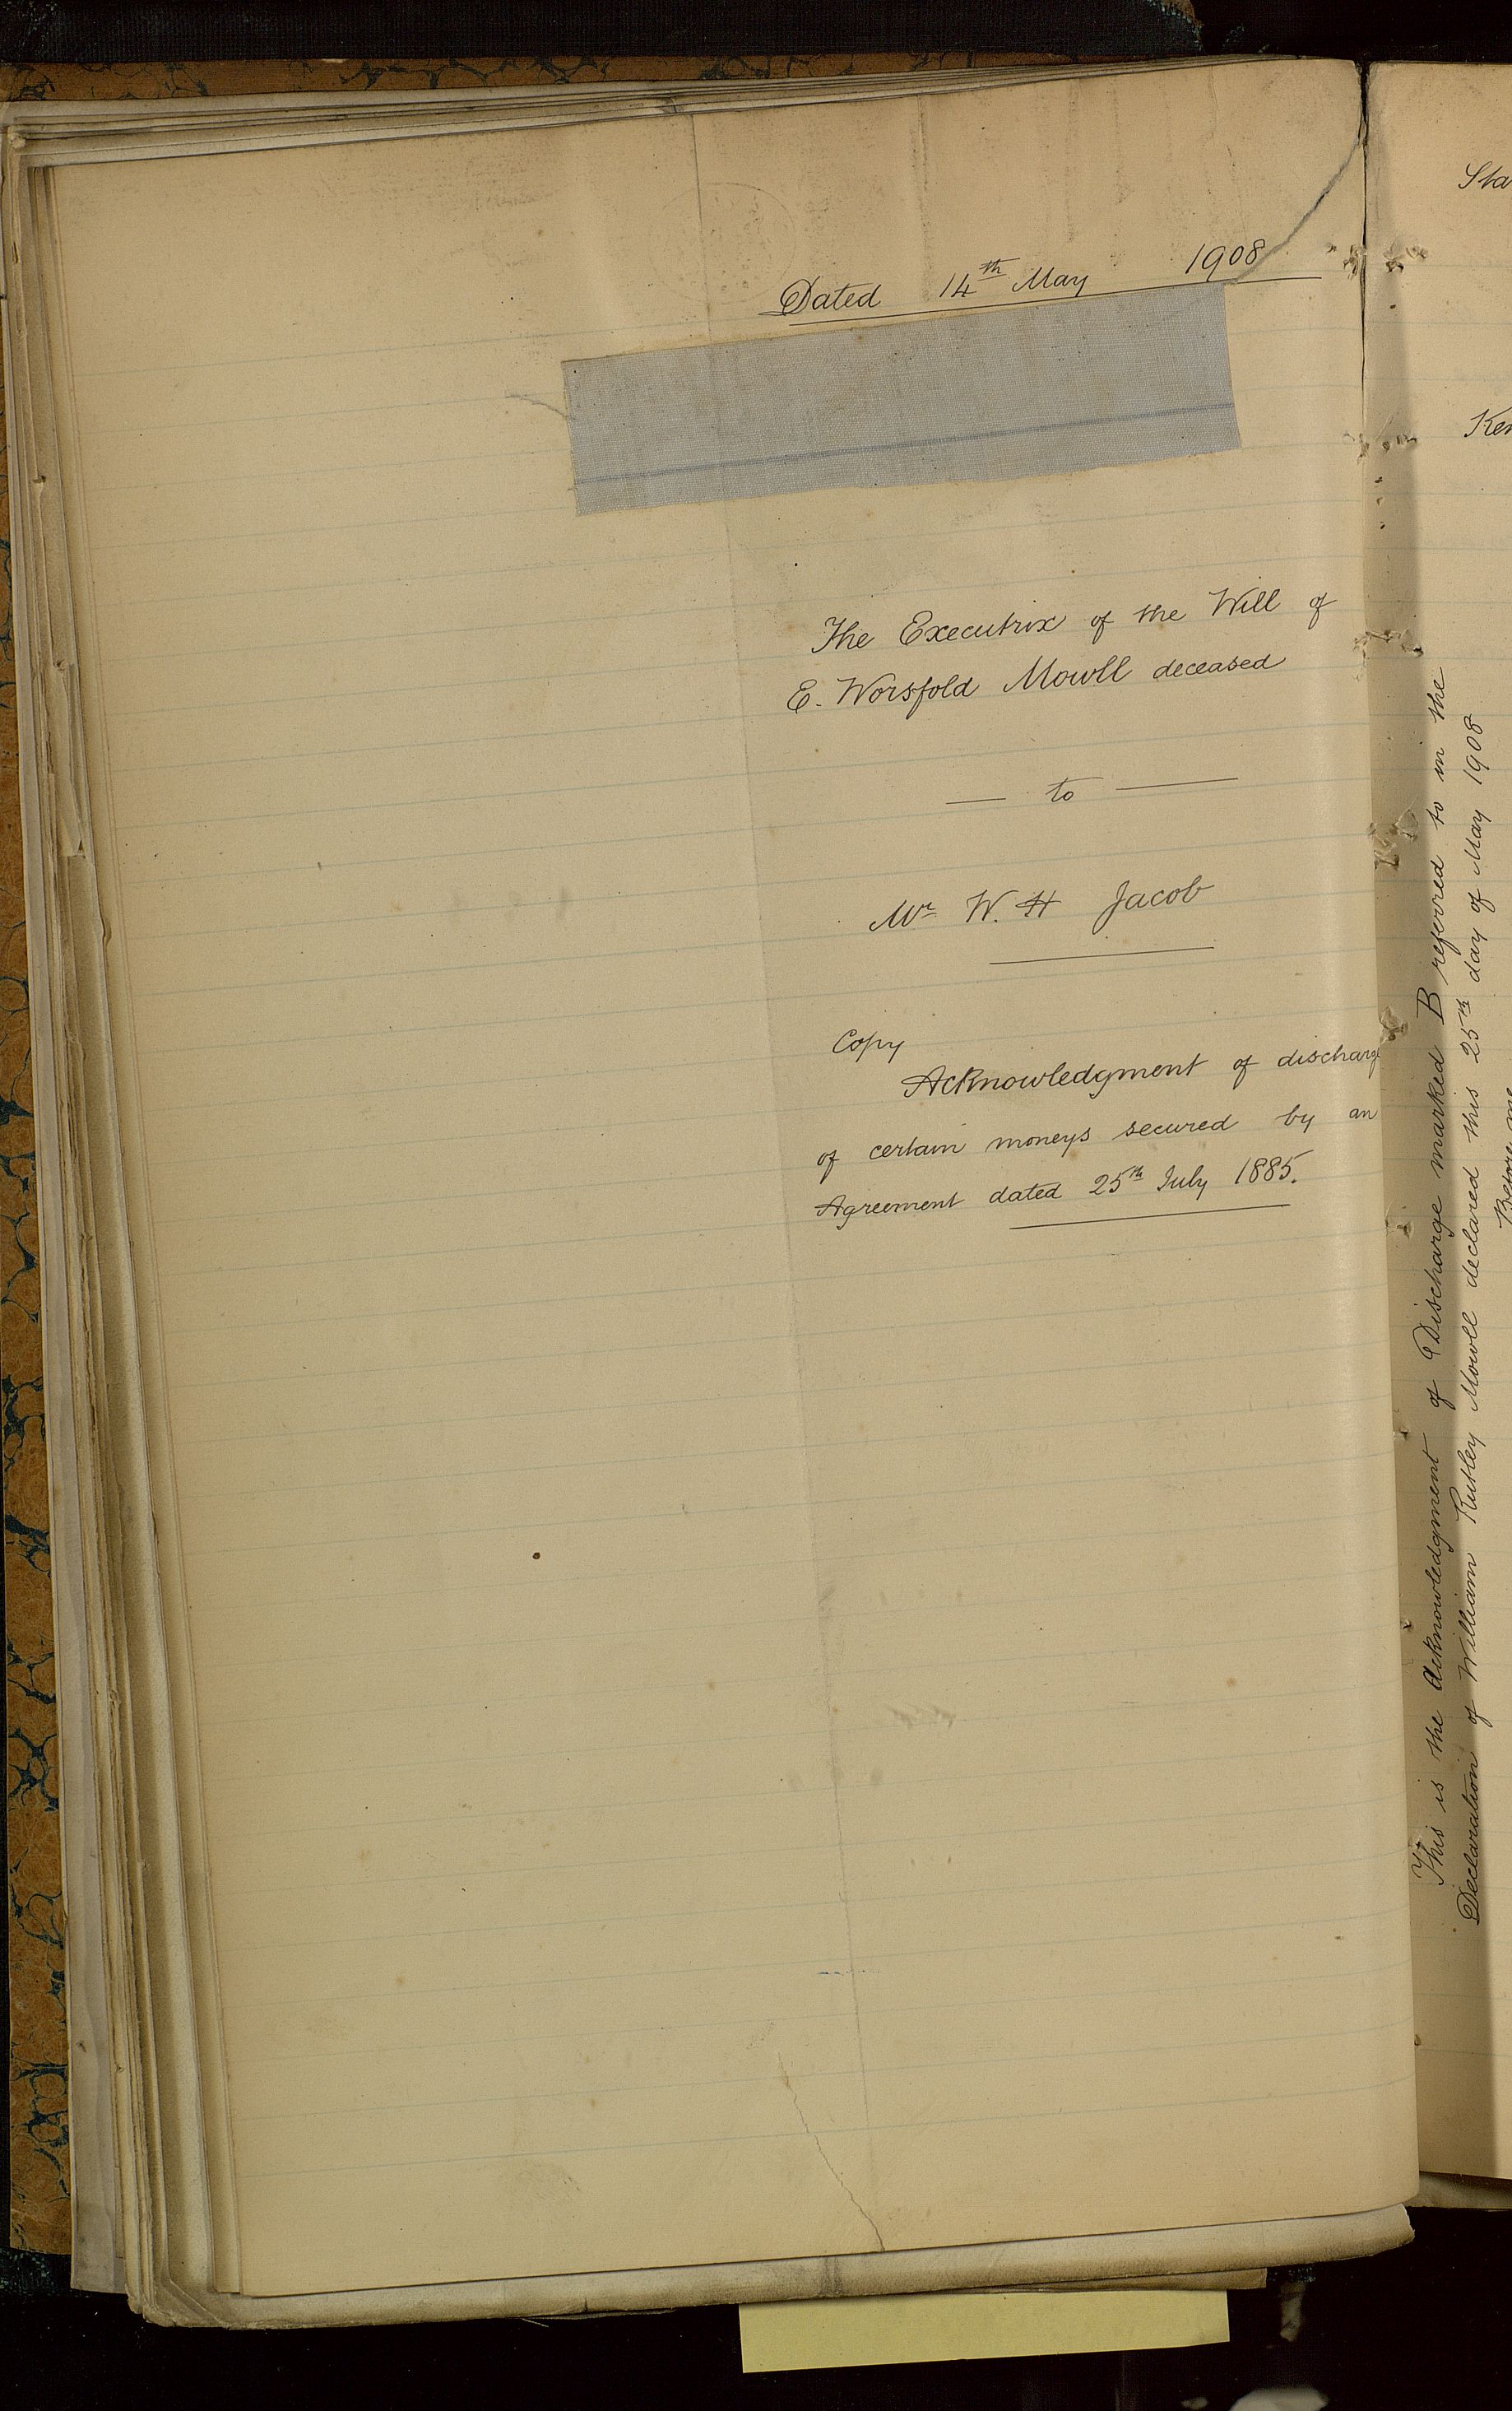 Dated 14th May 1908
The Executrix of the Will of
E. Worsfold Mowll deceased
to
Mr W. H Jacob
Copy
Acknowledgment of discharge
of certain moneys secured by an
Agreement dated 25th July 1885.
This is the Acknowledgment of Discharge marked B referred to in the
Declaration of William Rutley Mowll declared this 25th day of May 1908
Before me
Sta
Ken